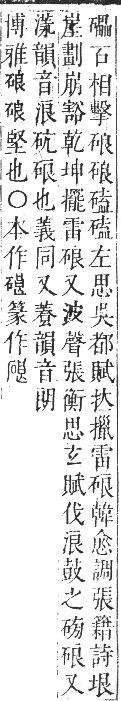 礧石相擊硠硠磕磕左思吳都賦拉擸雷硠韓愈調張籍詩垠
崖劃崩豁乾坤擺雷硠又波聲張衡思玄賦伐浪鼓之磅硠又
漾韻音浪砊硠也義同又養韻音朗
博雅硠硠堅也○本作磙篆作𥓪